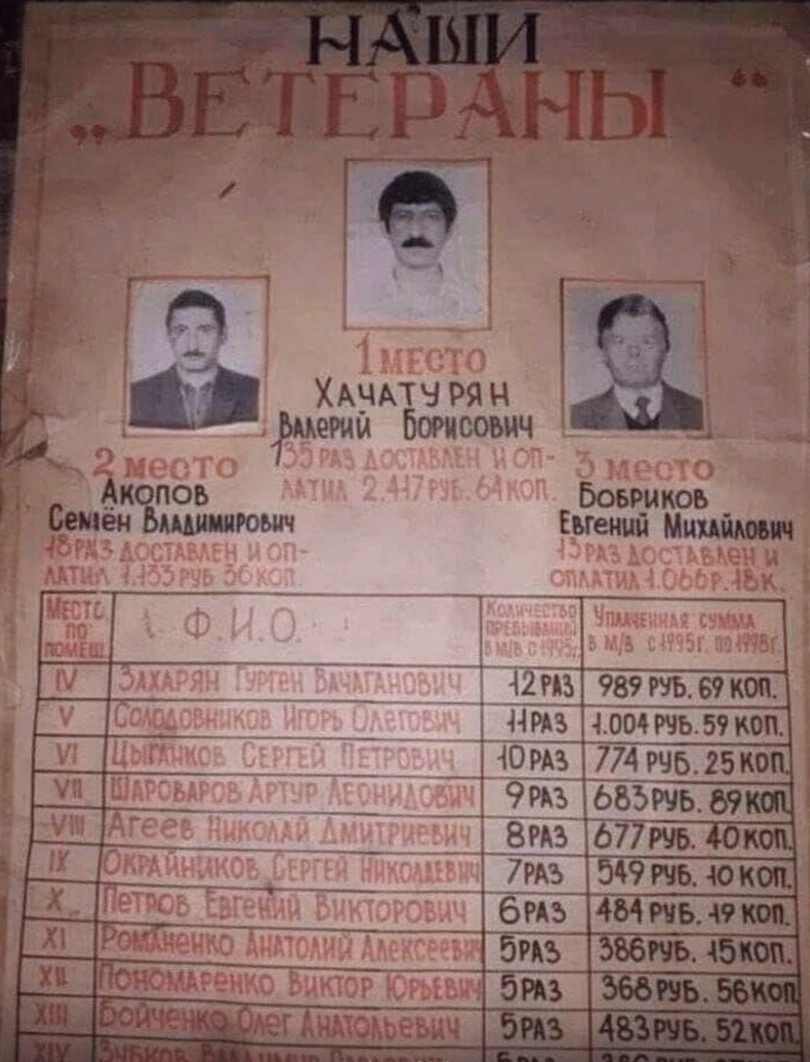 НАШИ
„ВЕТЕРАНЫ“
1 МЕСТО
ХАЧАТУРЯН
ВАЛЕРИЙ БОРИСОВИЧ
135 РАЗ ДОСТАВЛЕН И ОП-
ЛАТИЛ 2.417 РУБ. 64 КОП.
2 МЕСТО
АКОПОВ
СЕМЁН ВЛАДИМИРОВИЧ
18 РАЗ ДОСТАВЛЕН И ОП-
ЛАТИЛ 1.133 РУБ 36 КОП.
3 МЕСТО
БОБРИКОВ
ЕВГЕНИЙ МИХАЙЛОВИЧ
13 РАЗ ДОСТАВЛЕН И
ОПЛАТИЛ 1.066 Р. 18 К.
МЕСТО ПО ПОМЕЩ. Ф.И.О. КОЛИЧЕСТВО ПРЕБЫВАНИЙ В М/В С 1995г. УПЛАЧЕННАЯ СУММА В М/В С 1995г. ПО 1998г.
IV ЗАХАРЯН ГУРГЕН ВАЧАГАНОВИЧ 12 РАЗ 989 РУБ. 69 КОП.
V СОЛОДОВНИКОВ ИГОРЬ ОЛЕГОВИЧ 11 РАЗ 1.004 РУБ. 59 КОП.
VI ЦЫГАНКОВ СЕРГЕЙ ПЕТРОВИЧ 10 РАЗ 774 РУБ. 25 КОП.
VII ШАРОВАРОВ АРТУР ЛЕОНИДОВИЧ 9 РАЗ 683 РУБ. 89 КОП.
VIII АГЕЕВ НИКОЛАЙ ДМИТРИЕВИЧ 8 РАЗ 677 РУБ. 40 КОП.
IX ОКРАЙНИКОВ СЕРГЕЙ НИКОЛАЕВИЧ 7 РАЗ 549 РУБ. 10 КОП.
X ПЕТРОВ ЕВГЕНИЙ ВИКТОРОВИЧ 6 РАЗ 484 РУБ. 19 КОП.
XI РОМАНЕНКО АНАТОЛИЙ АЛЕКСЕЕВИЧ 5 РАЗ 386 РУБ. 15 КОП.
XII ПОНОМАРЕНКО ВИКТОР ЮРЬЕВИЧ 5 РАЗ 368 РУБ. 56 КОП
XIII БОЙЧЕНКО ОЛЕГ АНАТОЛЬЕВИЧ 5 РАЗ 483 РУБ. 52 КОП.
XIV ЗУБКОВ ВЛАДИМИР